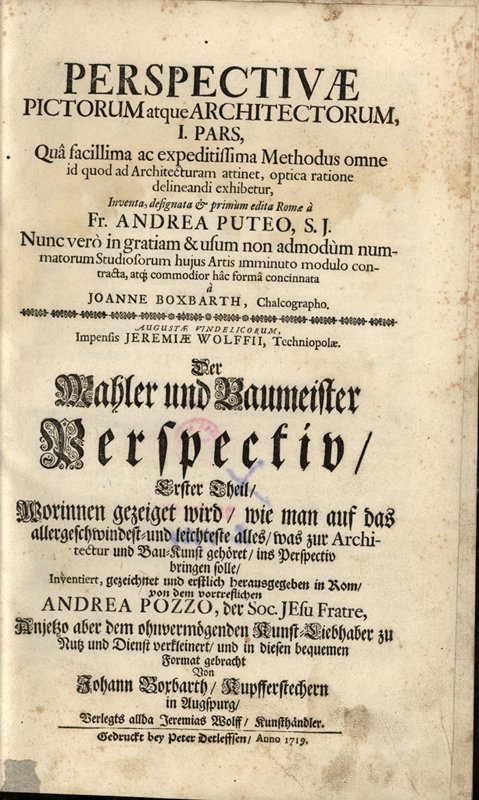 PERSPECTIVÆ
PICTORUM atque ARCHITECTORUM,
I. PARS,
Quâ facillima ac expeditissima Methodus omne
id quod ad Architecturam attinet, optica ratione
delineandi exhibetur,
Inventa, designata & primùm edita Romæ à
Fr. ANDREA PUTEO, S. J.
Nunc verò in gratiam & usum non admodùm num-
matorum Studiosorum hujus Artis imminuto modulo con-
tracta, atq́; commodior hâc formâ concinnata
à
JOANNE BOXBARTH, Chalcographo.
AUGUSTÆ VINDELICORUM,
Impensis JEREMIÆ WOLFFII, Techniopolæ.
Der
Mahler und Baumeister
Perspectiv/
Erster Theil/
Worinnen gezeiget wird/ wie man auf das
allergeschwindest-und leichteste alles/ was zur Archi-
tectur und Bau-Kunst gehöret/ ins Perspectiv
bringen solle/
Inventiert, gezeichnet und erstlich herausgegeben in Rom/
von dem vortreflichen
ANDREA POZZO, der Soc. JEsu Fratre,
Anjetzo aber dem ohnvermögenden Kunst-Liebhaber zu
Nutz und Dienst verkleinert/ und in diesen bequemen
Format gebracht
Von
Johann Boxbarth/ Kupfferstechern
in Augspurg/
Verlegts allda Jeremias Wolff/ Kunsthändler.
Gedruckt bey Peter Detleffsen/ Anno 1719.